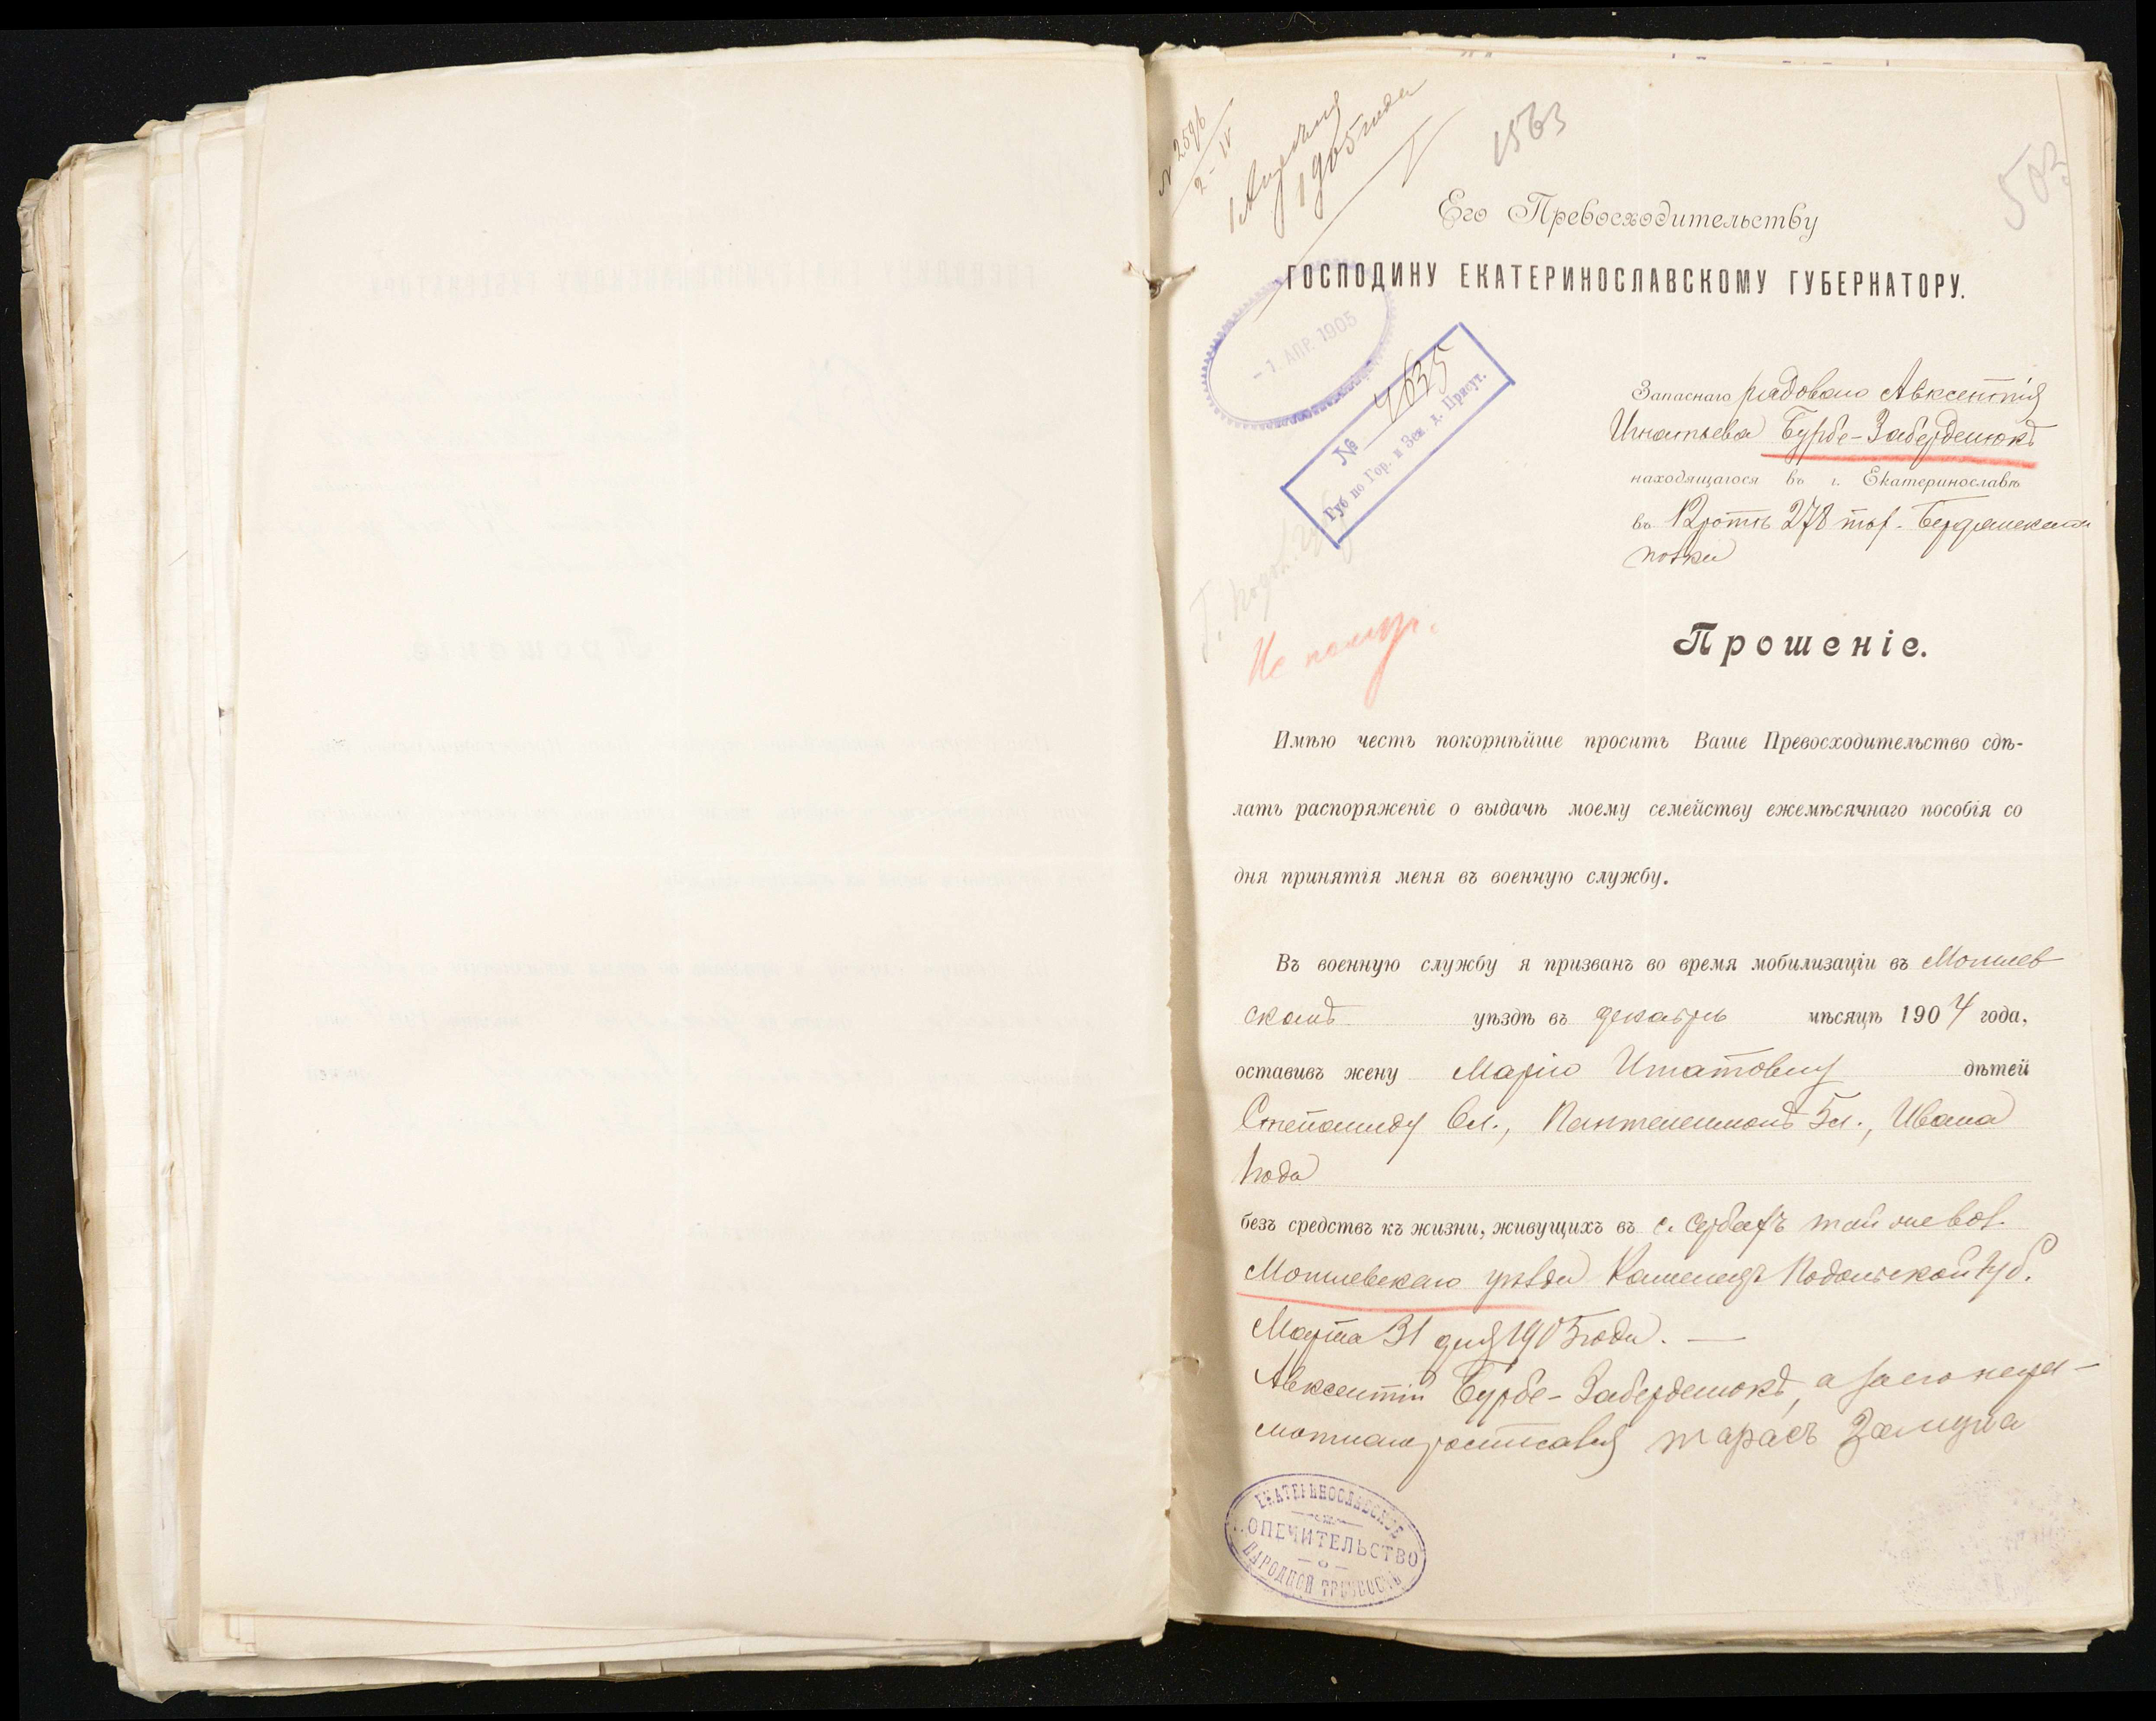 № 2596
2-IV
1 Апрѣля
1905 года
1563
503
Его Превосходительству
ГОСПОДИНУ ЕКАТЕРИНОСЛАВСКОМУ ГУБЕРНАТОРУ.
- 1 АПР. 1905
№ 4635
Губ по Гор. и Зем. д. Присут.
Запаснаго рядового Авксентія
Игнатьева Бурбе-Забердецюкъ
находящагося въ г. Екатеринославѣ
въ 12 ротѣ 278 пѣх. Бердянскаго
полка
Г. Подол. губ
Не получ.
Прошеніе.
Имѣю честь покорнѣйше просить Ваше Превосходительство сдѣ-
лать распоряженіе о выдачѣ моему семейству ежемѣсячнаго пособія со
дня принятія меня въ военную службу.
Въ военную службу я призванъ во время мобилизаціи въ Могилев
скомъ уѣздѣ въ декабрѣ мѣсяцѣ 1904 года,
оставивъ жену Марію Игнатовну дѣтей
Степаниду 6 л., Пантелеимонъ 5 л., Ивана
1 года
безъ средствъ къ жизни, живущихъ въ с. Сербахъ вол.
Могилевскаго уѣзда Каменецъ Подольской губ.
Марта 31 дня 1905 года. —
Авксентій Бурбе-Забердецюкъ, а за его негра-
мотнаго росписався Тарасъ
ЕКАТЕРИНОСЛАВСКОЕ
ПОПЕЧИТЕЛЬСТВО
О
НАРОДНОЙ ТРЕЗВОСТИ